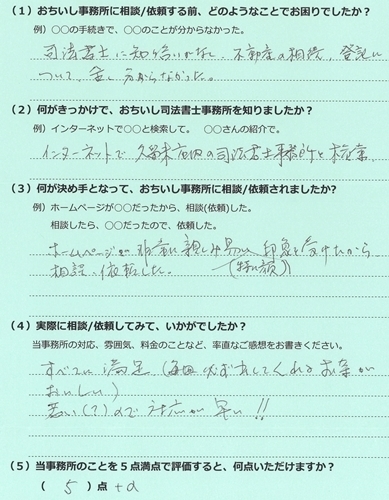 (1) おちいし事務所に相談/依頼する前、どのようなことでお困りでしたか?
例) ○○の手続きで、○○のことが分からなかった。
司法書士に知り合いがなく、不動産の相続、登記に
ついて、全く分からなかった。
(2) 何がきっかけで、おちいし司法書士事務所を知りましたか?
例) インターネットで○○と検索して。 ○○さんの紹介で。
インターネットで久留米市内の司法書士事務所を検索
(3) 何が決め手となって、おちいし事務所に相談/依頼されましたか?
例) ホームページが○○だったから、相談(依頼)した。
相談したら、○○だったので、依頼した。
ホームページが非常に親しみ易い印象を受けたから
相談、依頼した。 (特に顔)
(4) 実際に相談/依頼してみて、いかがでしたか?
当事務所の対応、雰囲気、料金のことなど、率直なご感想をお書きください。
すべてに満足 (毎回必ず出してくれるお茶が
おいしい)
若い(?)ので対応が早い!!
(5) 当事務所のことを5点満点で評価すると、何点いただけますか?
( 5 ) 点 +α